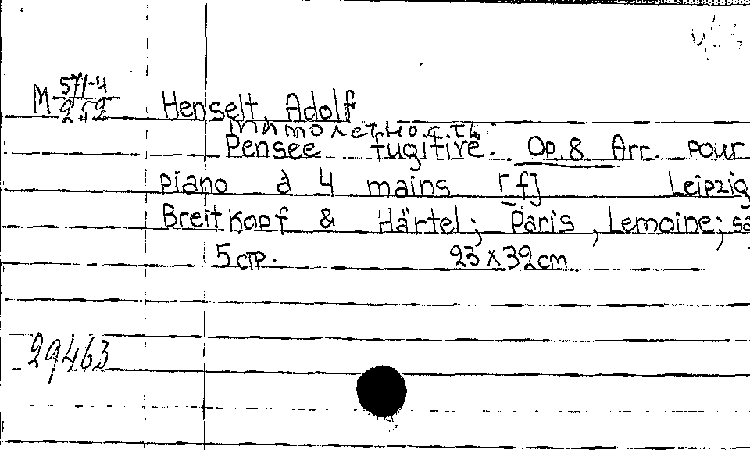 M 571-4
252
Henselt, Adolf
Мимолетность
Pensée fugitive. Op. 8 Arr. pour
piano à 4 mains [f] Leipzig
Breitkopf & Härtel; Paris, Lemoine; sa
5 стр. 23 x 32 cm
29463